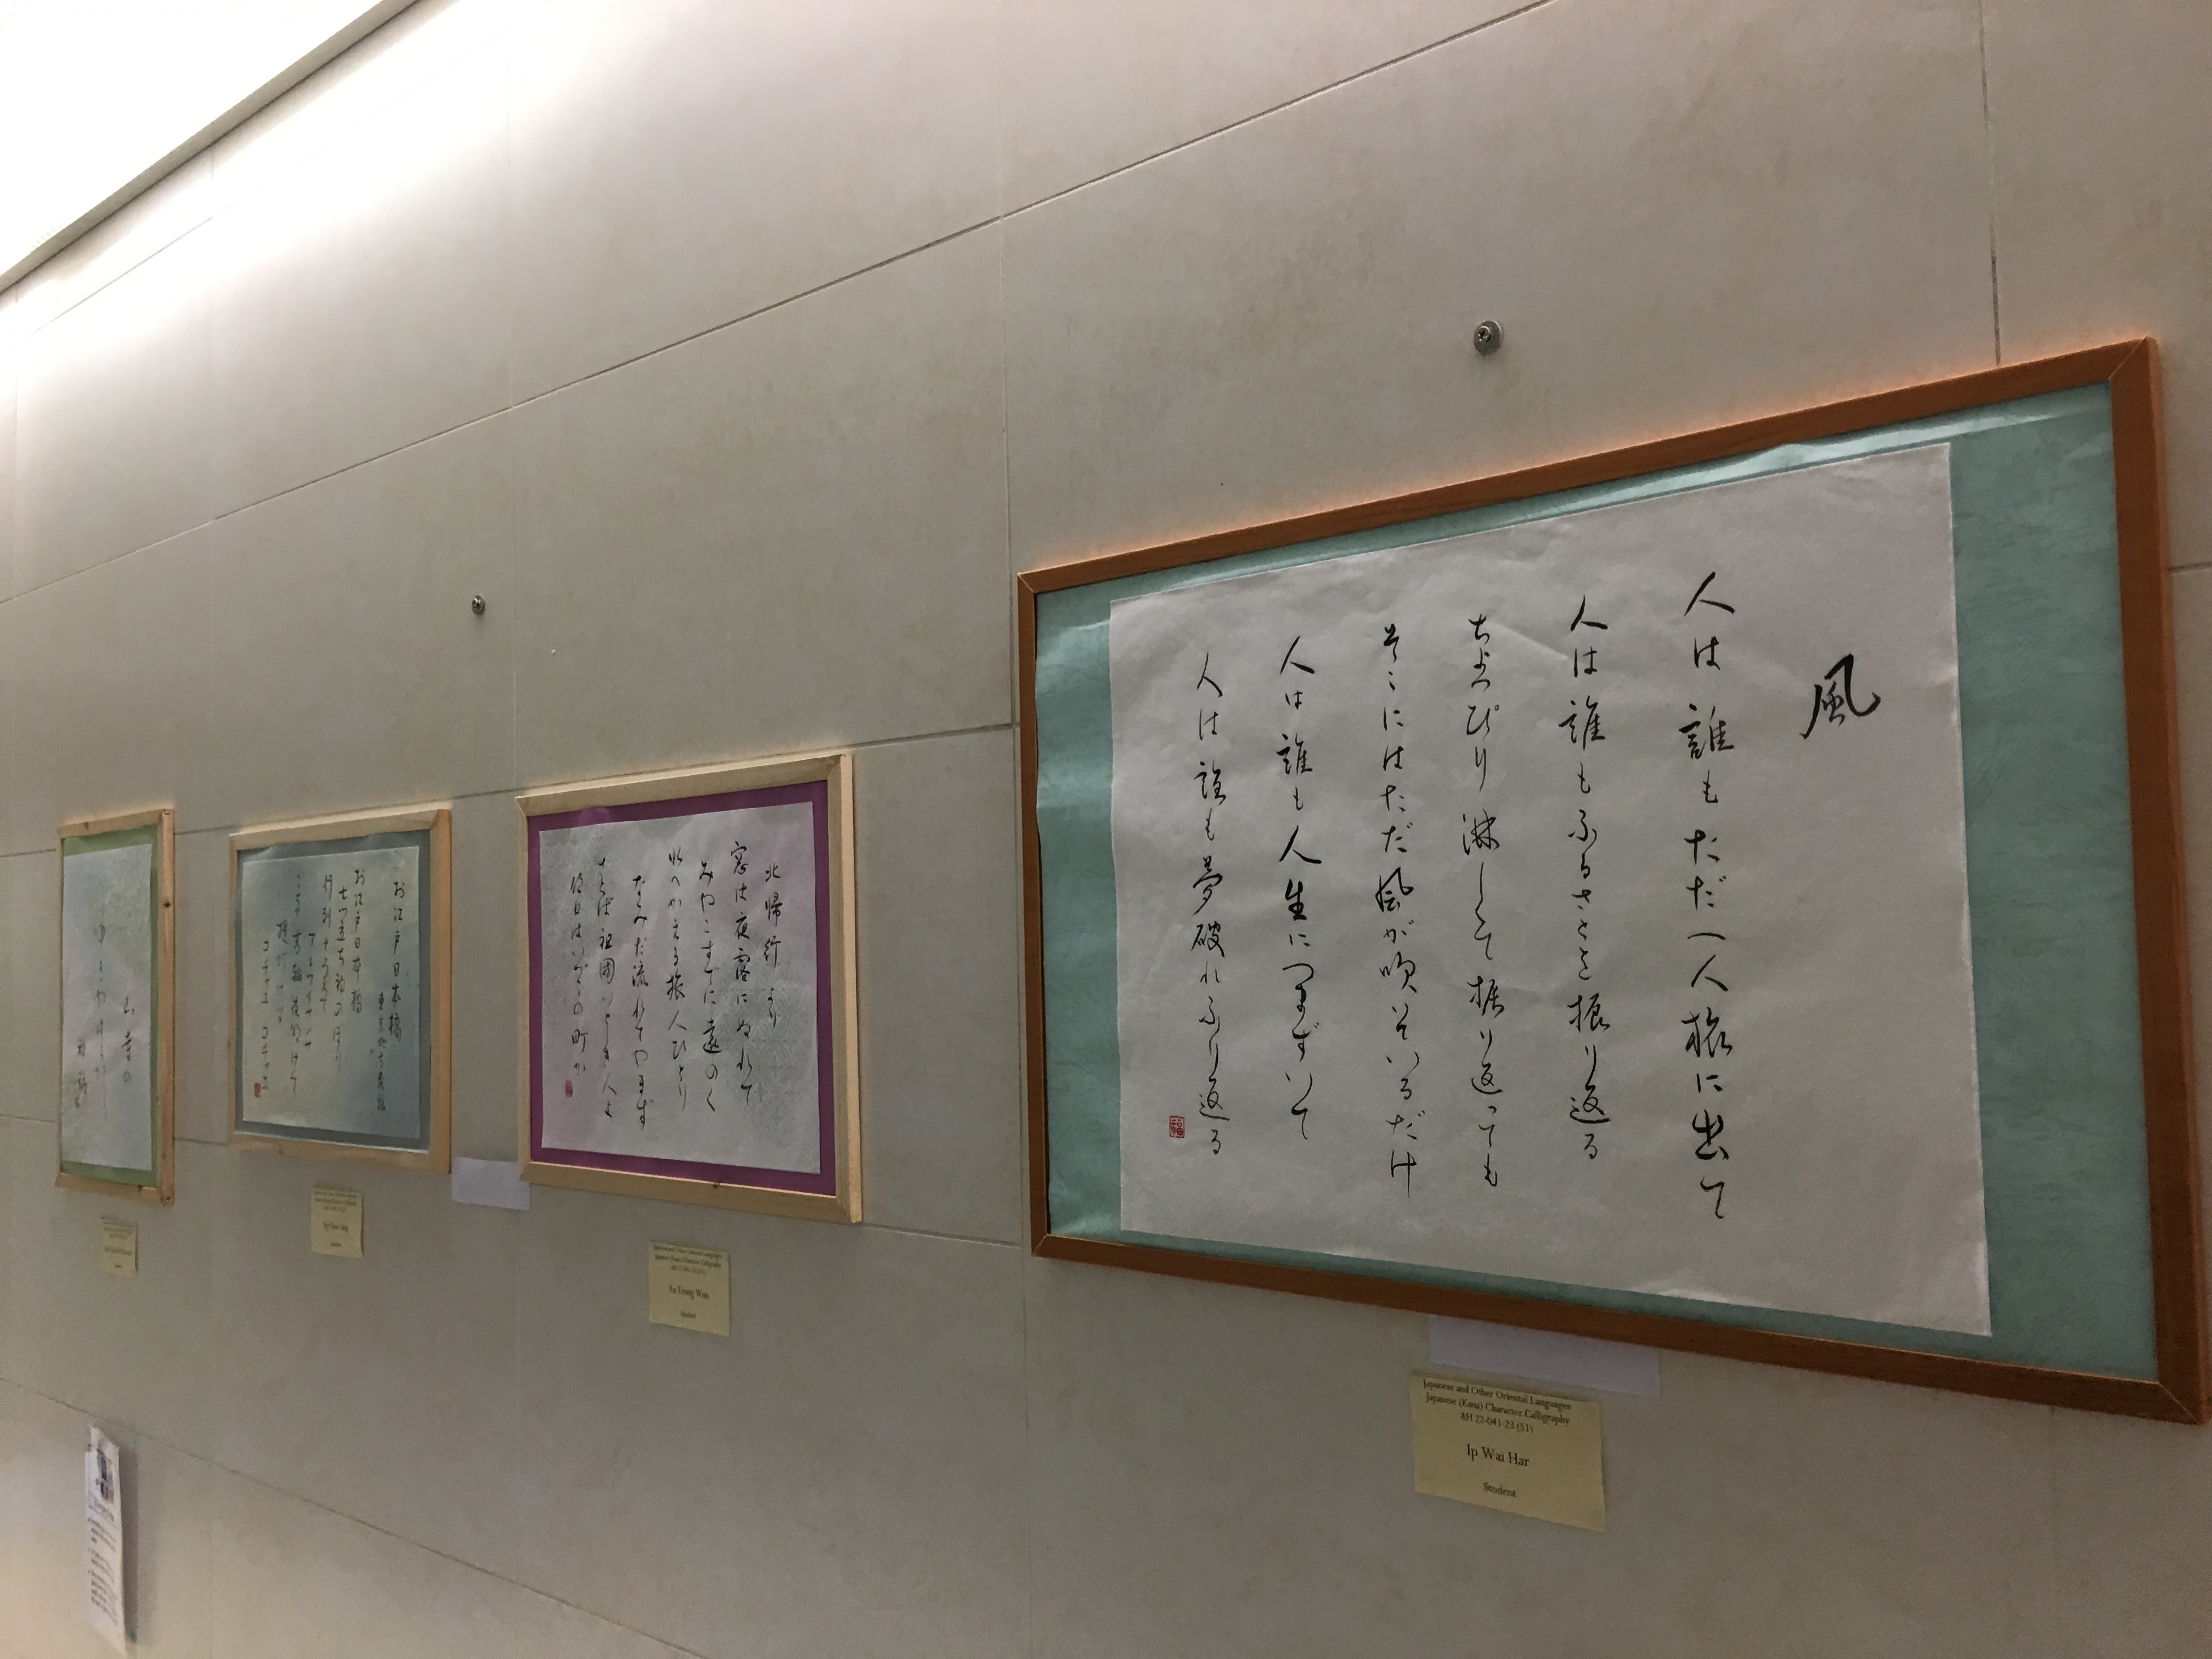 風
人は誰もただ一人旅に出て
人は誰もふるさとを振り返る
ちょっぴり淋しくて振り返っても
そこにはただ風が吹いているだけ
人は誰も人生につまずいて
人は誰も夢破れふり返る
福
Japanese and Other Oriental Languages
Japanese (Kana) Character Calligraphy
AH 22-041-23 (51)
Ip Wai Har
Student
北帰行より
窓は夜露にぬれて
みやこすでに遠のく
北へかえる旅人ひとり
なみだ流れてやまず
さらば祖国いとしき人よ
明日はいずこの町か
Japanese and Other Oriental Languages
Japanese (Kana) Character Calligraphy
Au Yeung Wan
Student
お江戸日本橋
お江戸日本橋
七つ立ち初のぼり
行列そろえて
アレワイサノサ
こちゃ高輪夜明けて
提灯
コチャエ コチャエ
山寺の